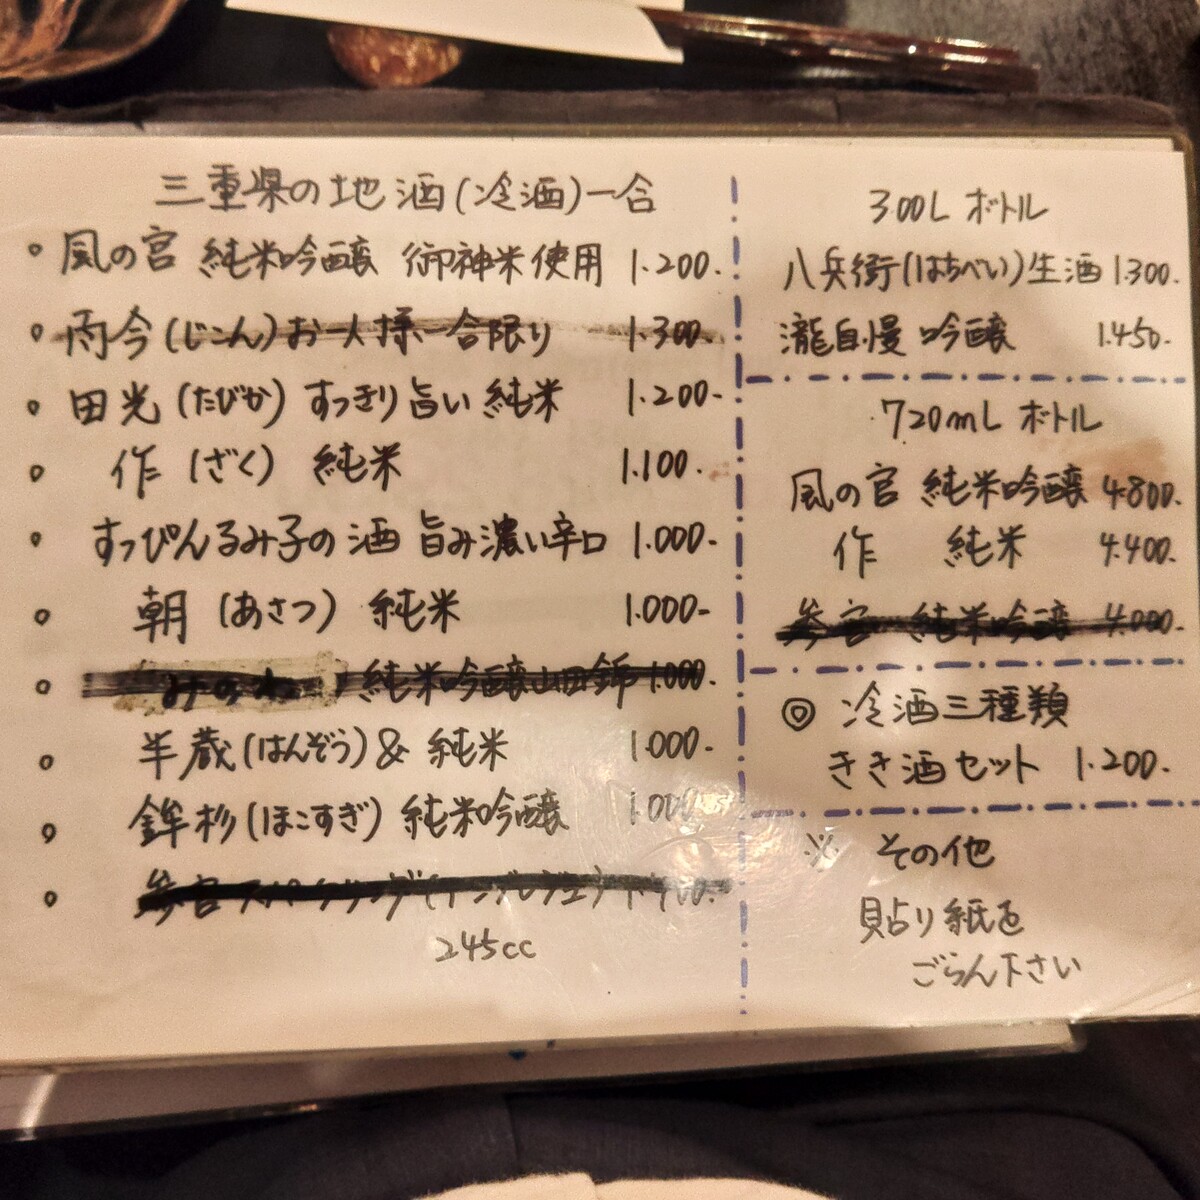 三重県の地酒(冷酒)一合
。風の宮 純米吟醸 御神米使用 1.200.
。而今(じこん)お一人様一合限り 1.300.
。田光(たびか)すっきり旨い 純米 1.200-
。作(ざく) 純米 1.100.
。すっぴんるみ子の酒 旨み濃い辛口 1.000-
。朝(あさつ) 純米 1.000-
。みのわ 純米吟醸山田錦 1.000.
。半蔵(はんぞう)& 純米 1.000-
。鉾杉(ほこすぎ) 純米吟醸 1.000
。参宮スパークリング
245cc
300L ボトル
八兵衛(はちべい)生酒 1.300.
瀧自慢 吟醸 1.450-
720mL ボトル
風の宮 純米吟醸 4.800.
作 純米 4.400.
参宮 純米吟醸 4.000-
◎ 冷酒三種類
きき酒セット 1.200.
※ その他
貼り紙を
ごらん下さい